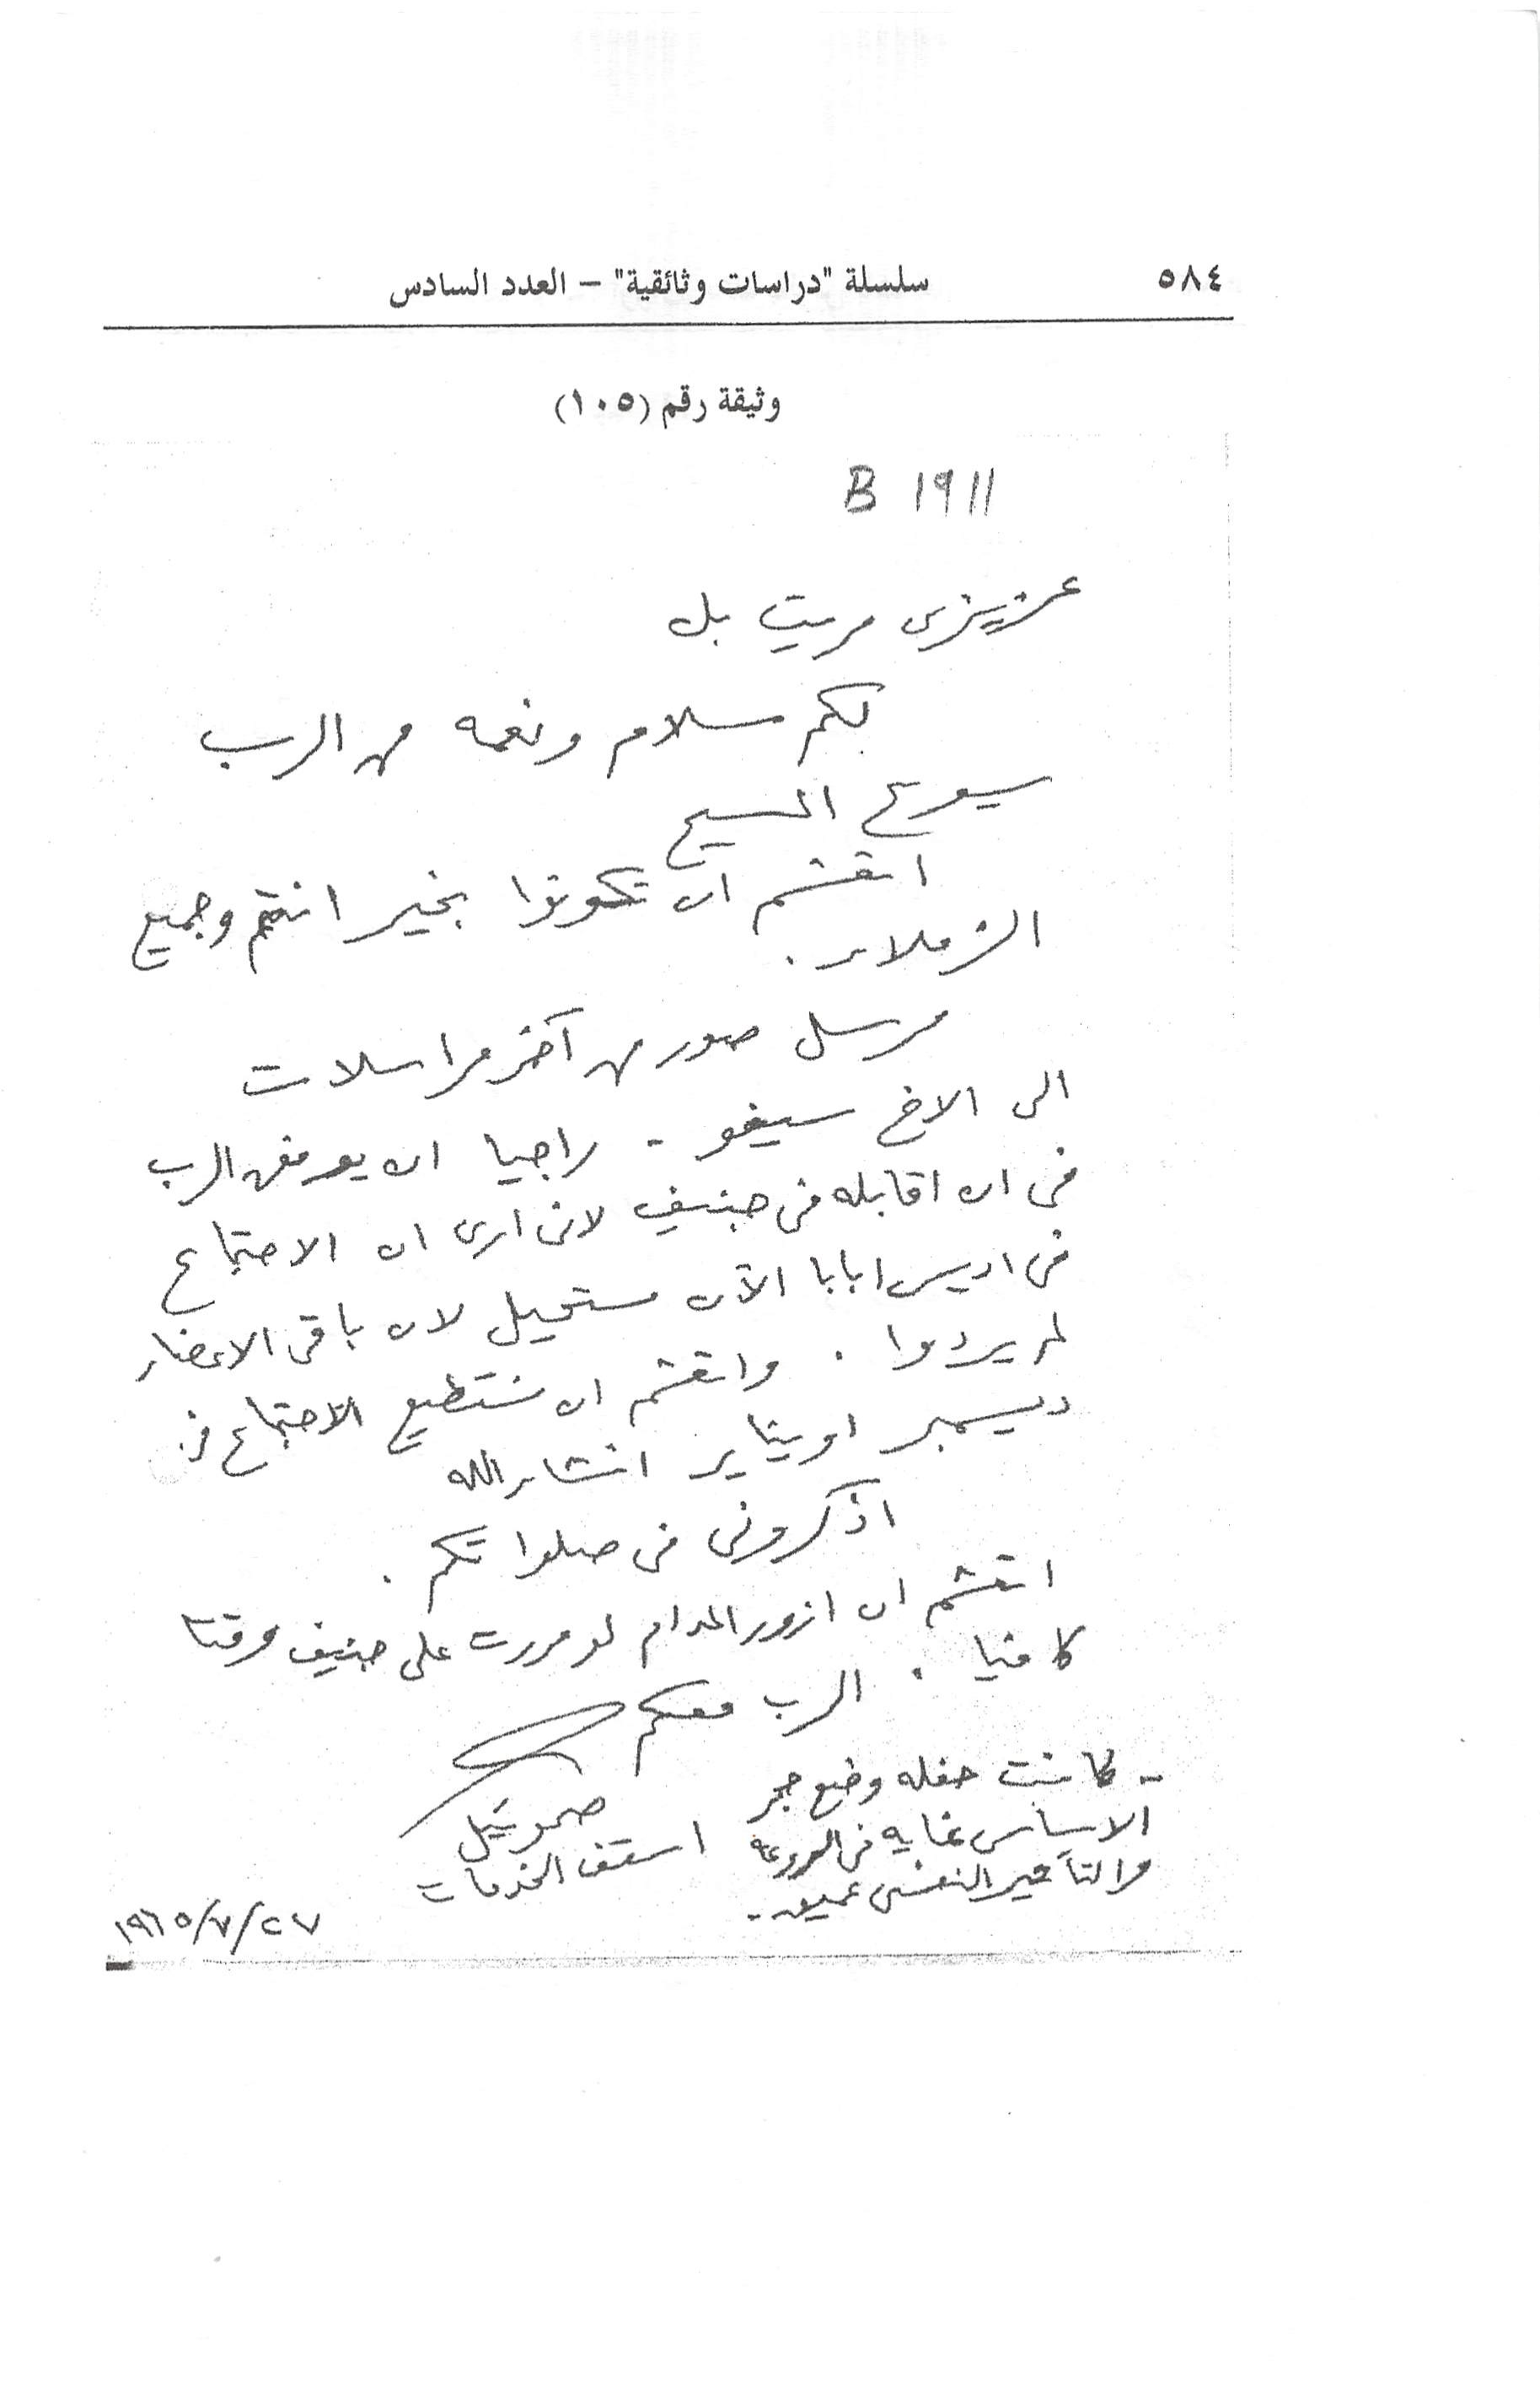 ٥٨٤
سلسلة "دراسات وثائقية" – العدد السادس
وثيقة رقم (١٠٥)
B 1911
عزيزى مريت بك
لكم سلام ونعمه من الرب
يسوع المسيح
اتعشم ان تكونوا بخير انتم وجميع
الزملاء .
مرسل صور من آخر مراسلات
الى الاخ سيفو - راجيا ان يوفق الرب
فى ان اقابله فى جنيف لانى ارى ان الاجتماع
فى اديس ابابا الآن مستحيل لان باقى الاعضاء
لم يردوا . واتعشم ان نستطيع الاجتماع فى
ديسمبر او يناير انشاء الله
اذكرونى فى صلواتكم .
اتعشم ان ازور المدام لو مررت على جنيف وقتا
كافيا . الرب معكم
صموئيل
اسقف الخدمات
٢٧/٧/١٩٦٥
- كانت حفله وضع حجر
الاساس غايه فى الروعه
والتأثير النفسى عميق -